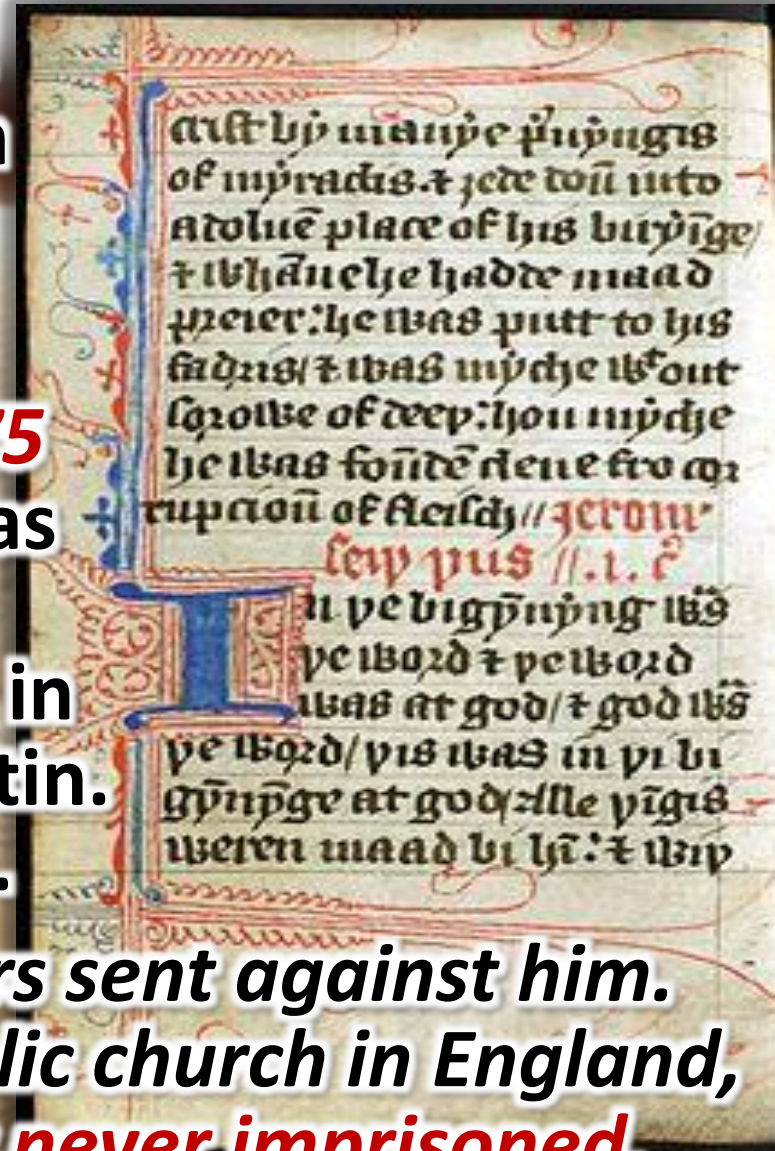 n
crist bẏ manẏe p̄uẏngis
of mẏraclis.⁊ ȝede doū into
a doluē place of his buẏīge/
⁊ whāne he hadde maad
preier:he was putt to his
fadris/⁊ was mẏche wᵗout
75
sorowe of deeþ:hou mẏche
he was foūdē clene fro cor
as
rupcioū of fleisch//Jerom
þus //.i. c̄
In þe bigẏnẏng wās
þe word ⁊ þe word
in
was at god/⁊ god wās
þe word/þis was in þi bi
tin.
gẏnẏ̄ge at god/Alle þīgis
weren maad bi hī:⁊ wiþ
.
rs sent against him.
lic church in England,
never imprisoned